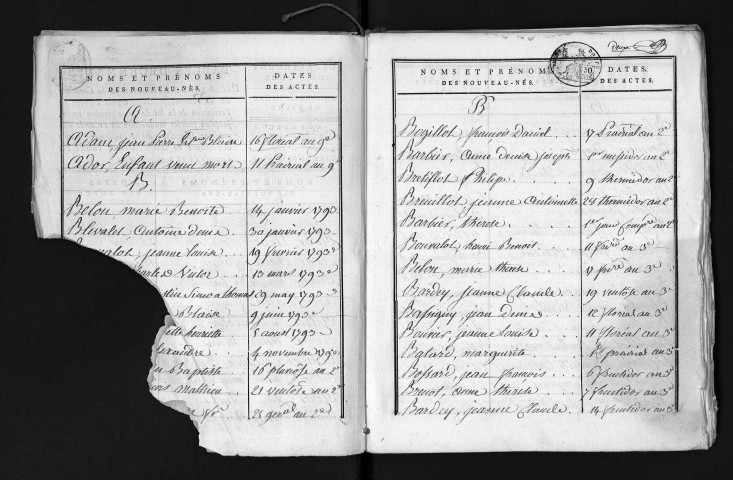 NOMS ET PRÉNOMS DES NOUVEAU-NÉS.
DATES DES ACTES.
A
Adam, jean Pierre Blaise 16 floréal an 9e
Ador, Enfant venu mort 11 Prairial an 9e
B.
Belou, marie Benoite 14 janvier 1793
Blevalot antoine denis 30 janvier 1793
jeanne louise 19 fevrier 1793
Victor 13 mars 1793
Simeon thomas 29 may 1793
Blaise 9 juin 1793
henriette 5 aoust 1793
4 novembre 1793
Baptiste 16 pluviôse an 2e
mathieu 21 ventôse an 2e
25 an 2e
NOMS ET PRÉNOMS DES NOUVEAU-NÉS.
DATES DES ACTES.
B
Bogillot, françois Daniel 17 Prairial an 2e
Barbier, anne denise joseph 1er messidor an 2e
Bretillot Philipe 9 thermidor an 2e
Breuillot, jeanne antoinette 24 thermidor an 2e
Barbier, therese 1er jour an 2e
Bouvalot, henri Benoit 11 an 3e
Belou, marie therese 17 an 3e
Bardey, jeanne Claude 19 ventôse an 3e
Bassigny, jean denis 12 floréal an 3e
jeanne louise 11 floréal an 3e
Balard, marguerite 1er prairial an 3e
Bossard, jean françois 6 fructidor an 3e
Brenot, anne therese 7 fructidor an 3e
Bardey, jeanne Claude 14 fructidor an 3e